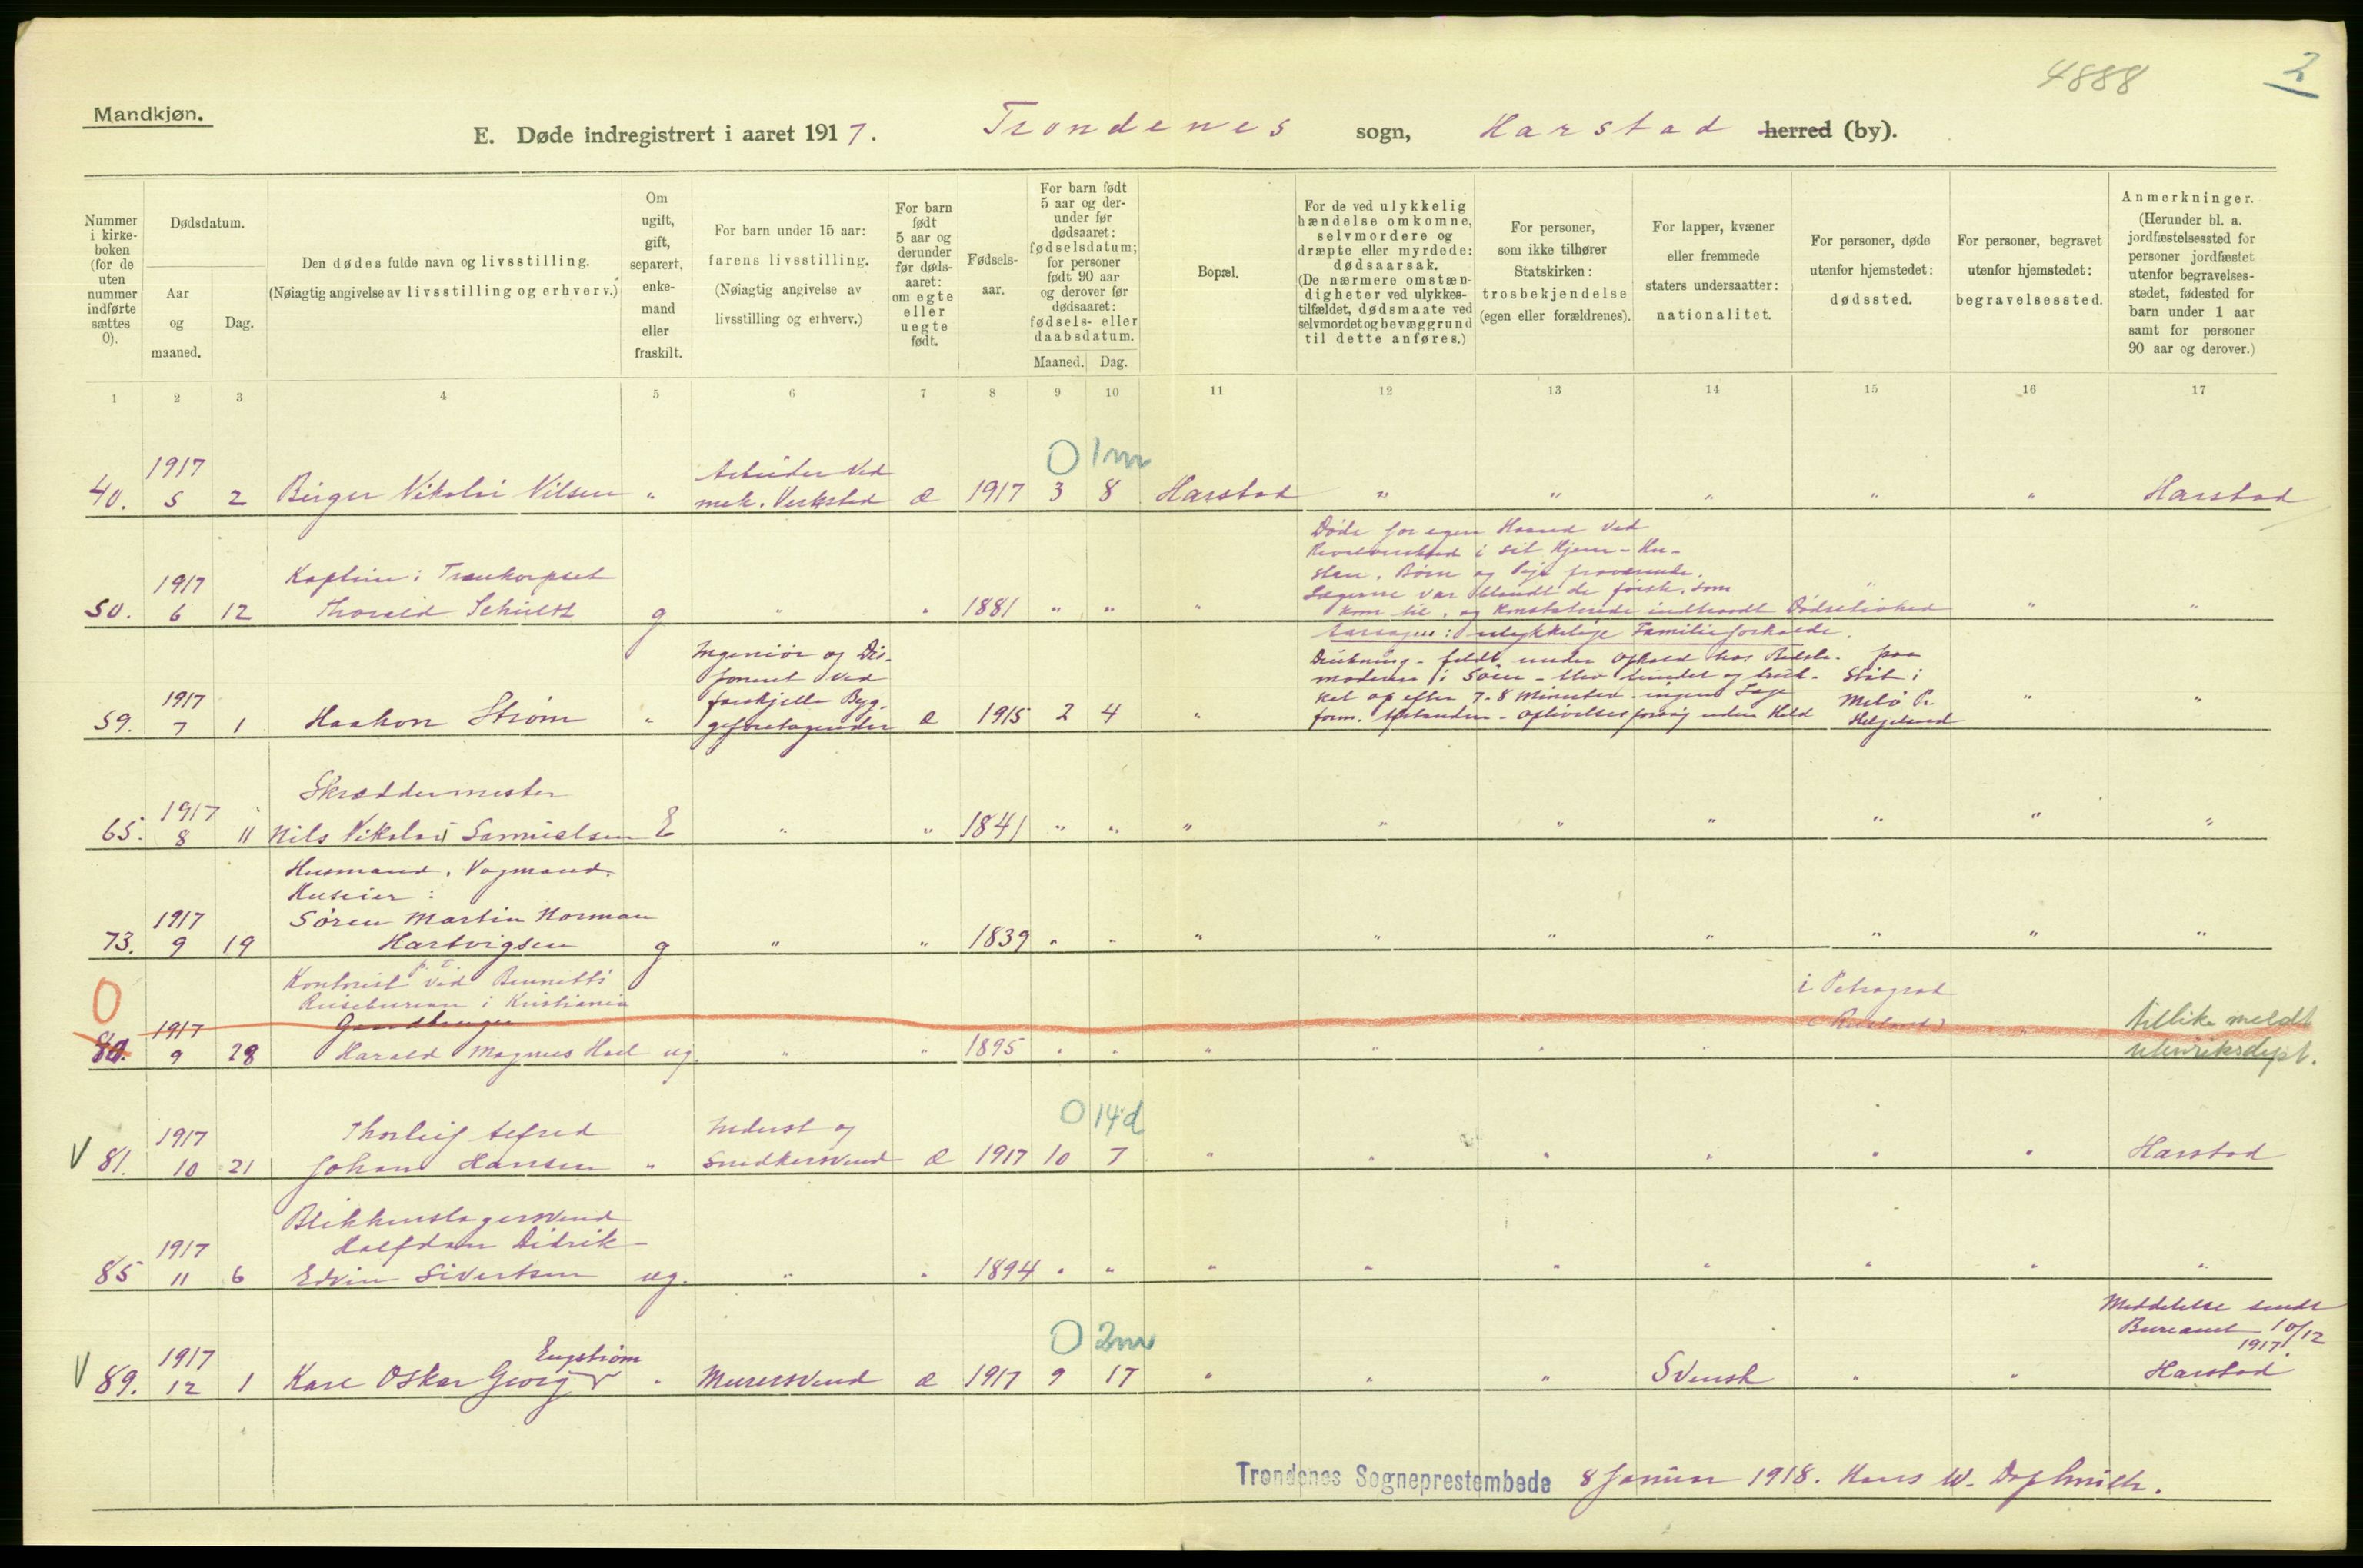 4888
2
Mandkjøn.
E. Døde indregistrert i aaret 1917. Trondenes sogn, Harstad herred (by).
Nummer i kirkeboken (for de uten nummer indførte sættes 0).
Dødsdatum.
Aar og maaned.
Dag.
Den dødes fulde navn og livsstilling.
(Nøiagtig angivelse av livsstilling og erhverv.)
Om ugift, gift, separert, enkemand eller fraskilt.
For barn under 15 aar: farens livsstilling.
(Nøiagtig angivelse av livsstilling og erhverv.)
For barn født 5 aar og derunder før dødsaaret: om egte eller uegte født.
Fødselsaar.
For barn født 5 aar og derunder før dødsaaret: fødselsdatum; for personer født 90 aar og derover før dødsaaret: fødsels- eller daabsdatum.
Maaned. Dag.
Bopæl.
For de ved ulykkelig hændelse omkomne, selvmordere og dræpte eller myrdede: dødsaarsak.
(De nærmere omstændigheter ved ulykkestilfældet, dødsmaate ved selvmordet og bevæggrund til dette anføres.)
For personer, som ikke tilhører Statskirken: trosbekjendelse (egen eller forældrenes).
For lapper, kvæner eller fremmede staters undersaatter: nationalitet.
For personer, døde utenfor hjemstedet: dødssted.
For personer, begravet utenfor hjemstedet: begravelsessted.
Anmerkninger.
(Herunder bl. a. jordfæstelsessted for personer jordfæstet utenfor begravelsesstedet, fødested for barn under 1 aar samt for personer 90 aar og derover.)
1 2 3 4 5 6 7 8 9 10 11 12 13 14 15 16 17
0 1m
1917 Arbeider ved
40. 5 2 Birger Nikolai Nilsen " mek. Verksted e 1917 3 8 Harstad " " " " " Harstad
Døde for egen Haand ved
Revolverskud i sit Hjem - Hu-
struen, Børn og Pige fraværende.
1917 Kaptein i Trænkorpset
Lægerne var blandt de første, som
50. 6 12 Thorald Schultz g " " 1881 " " " kom til, og konstaterede indtraadt Dødsstivhed " "
Aarsagen: ulykkelige Familieforholde.
Ingeniør og Dis-
ponent ved
1917 forskjellige Byg-
59. 7 1 Haakon Strøm " geforetagender e 1915 2 4 "
Drukning - faldt under Ophold hos Bedste-
moderen i Søen - blev fundet og truk-
ket op efter 7-8 Minuter. ingen Læge
Oplivelsesforsøg uden Held
paa
Støt i
Melø Pr.
Helgeland " "
1917 Skræddermester
65. 8 11 Nils Nikolai Samuelsen E " " 1841 " " " " " " " " "
Husmand, Vognmand,
Huseier:
1917 Søren Martin Norman
73. 9 19 Hartvigsen g " " 1839 " " " " " " " " "
0
Kontorist p.t. ved Bennetts
Reisebureau i Kristiania
i Petrograd
(Rusland)
1917
80. 9 28 Harald Magnus Hoel ug. " " 1895 " " " " " " "
tillike meldt
utenriksdept.
0 14d
1917 Thorleif Alfred Indust og
V 81. 10 21 Johan Hansen " Snedkersvend e 1917 10 7 " " " " " " Harstad
Blikkenslagersvend
1917 Halfdan Didrik
85 11 6 Edvin Sivertsen ug. " " 1894 " " " " " " " " "
Meddelelse sendt
Bureauet 10/12
1917.
0 2m
1917 Engstrøm
V 89. 12 1 Karl Oskar Georg " Murersvend e 1917 9 17 " " " Svensk " " Harstad
Trondenes Sogneprestembede 8 Januar 1918. Hans W.